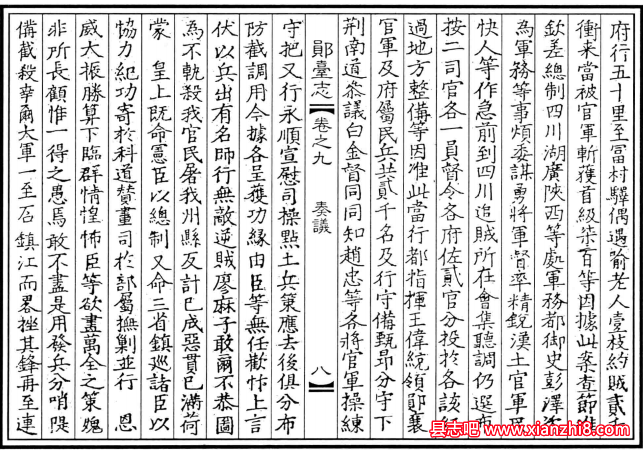 府行五十里至富村驛偶遇喻老人一枝約賊貳千
衝来當被官軍斬獲首級柒百等因據此案查節准
欽差總制四川湖廣陕西等處軍務都御史彭澤咨
為軍務等事煩委謀勇將軍督率精銳漢土官軍
快人等作急前到四川追賊所在會集聽調仍選布
按二司官各一員督令各府佐貳官分投於各該
過地方整備等因准此當行都指揮王偉統領鄖襄
官軍及府屬民兵共貳千名及行守備甄昂分守下
荆南道叅議白金督同同知趙忠等各將官軍操練
鄖臺志
卷之九
奏議
八
守把又行永順宣慰司操點土兵策應去後俱分布
防截調用今據各呈獲功緣由臣等無任歡忭上言
伏以兵出有名師行無敵逆賊廖麻子敢爾不恭圖
為不軌殺我官民屠我州縣反計已成惡貫已滿荷
蒙 皇上既命憲臣以總制又命三省鎮巡諸臣以
協力紀功寄於科道贊畫司於部屬撫剿並行 恩
威大振勝算下臨群情惶怖臣等欲畫萬全之策媿
非所長顧惟一得之愚焉敢不盡是用發兵分哨隄
備截殺幸爾大軍一至石鎮江而畧挫其鋒再至連
县志吧
www.xianzhi8.com